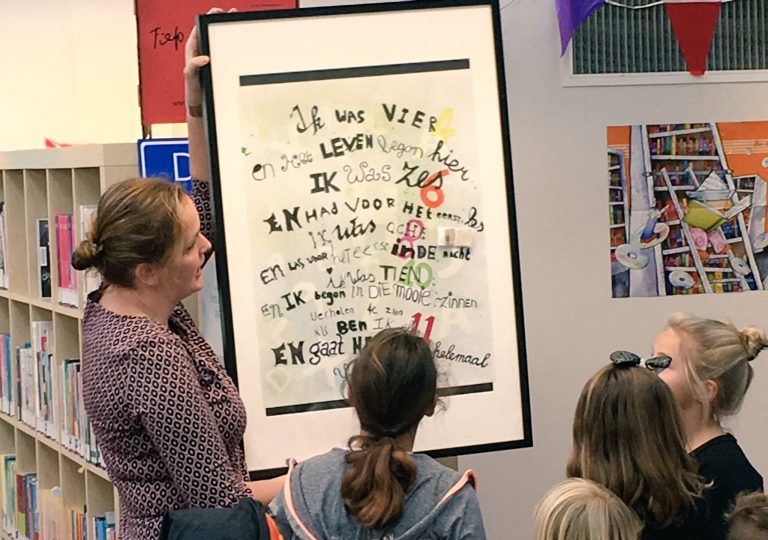 Tiep
D
Ik WAS VIER 4
en Het LEVEN begon hier
IK Was zes 6
EN HAD VOOR HET eerst les
Ik was ACHt 8
EN las VOOR het eerst inDE nacht
ik Was TIEN 10
en IK begon in DIE mooie zinnen
verhalen te zien
NU BEN IK 11
EN gaat helemaal